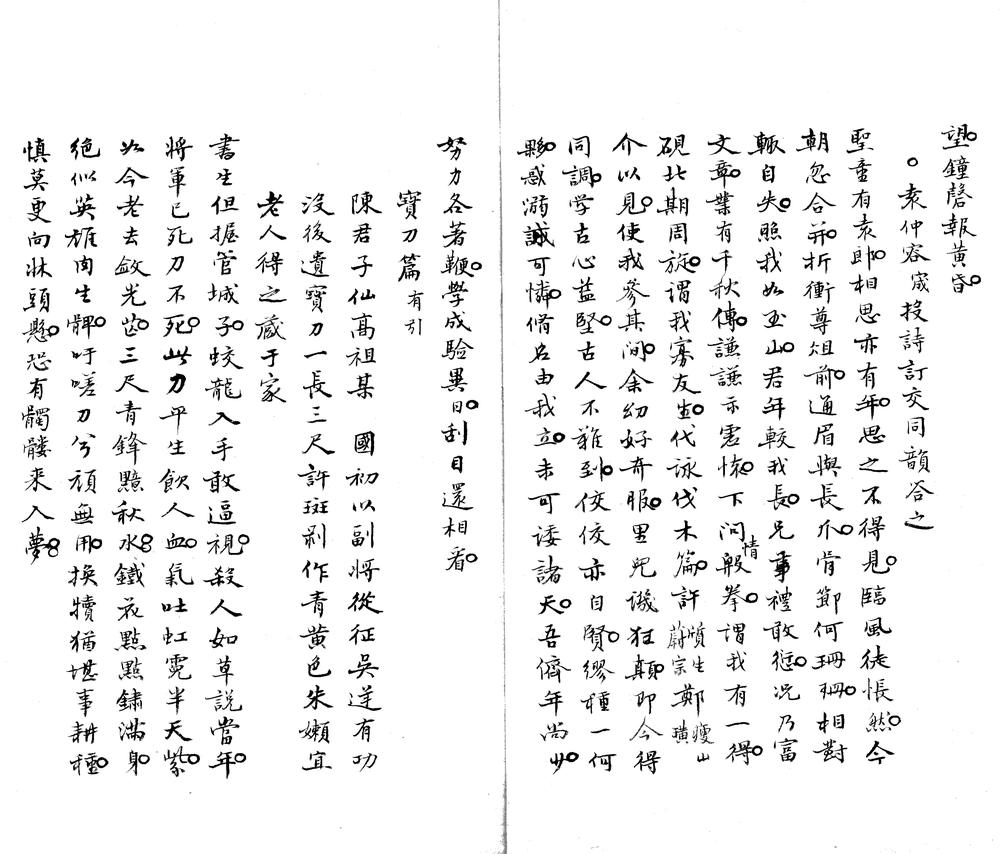 望鐘磬報黃昏
袁仲容宬投詩訂交同韻答之
聖童有袁郎相思亦有年思之不得見臨風徒悵然今
朝忽合并折衝尊俎前通眉與長爪骨節何珊珊相對
輒自失照我如玉山君年較我長兄事禮敢愆况乃富
文章業有千秋傳謙謙示雲㤞下問情般拳謂我有一得
硯北期周旋謂我寡友生代詠伐木篇許蔚宗質生鄭瘦山璜
介以見使我參其間余幼好奇服里兒譏狂顛即今得
同調学古心益堅古人不難到佼佼亦自賢繆種一何
夥惑溺誠可憐脩名由我立未可诿諸天吾儕年尚少
努力各著鞭學成驗異日刮目還相看
寶刀篇有引
陳君子仙高祖某 國初以副將從征吳逆有功
沒後遺寶刀一長三尺許斑剥作青黄色朱嬾宜
老人得之藏于家
書生但握管城子蛟龍入手敢逼視殺人如草説當年
將軍已死刀不死此刀平生飲人血氣吐虹霓半天紫
如今老去斂光芒三尺青鋒黯秋水鐵花點點鏽滿身
絶似英雄肉生髀吁嗟刀兮頑無用換犢猶堪事耕種
慎莫更向牀頭懸恐有髑髏来入夢